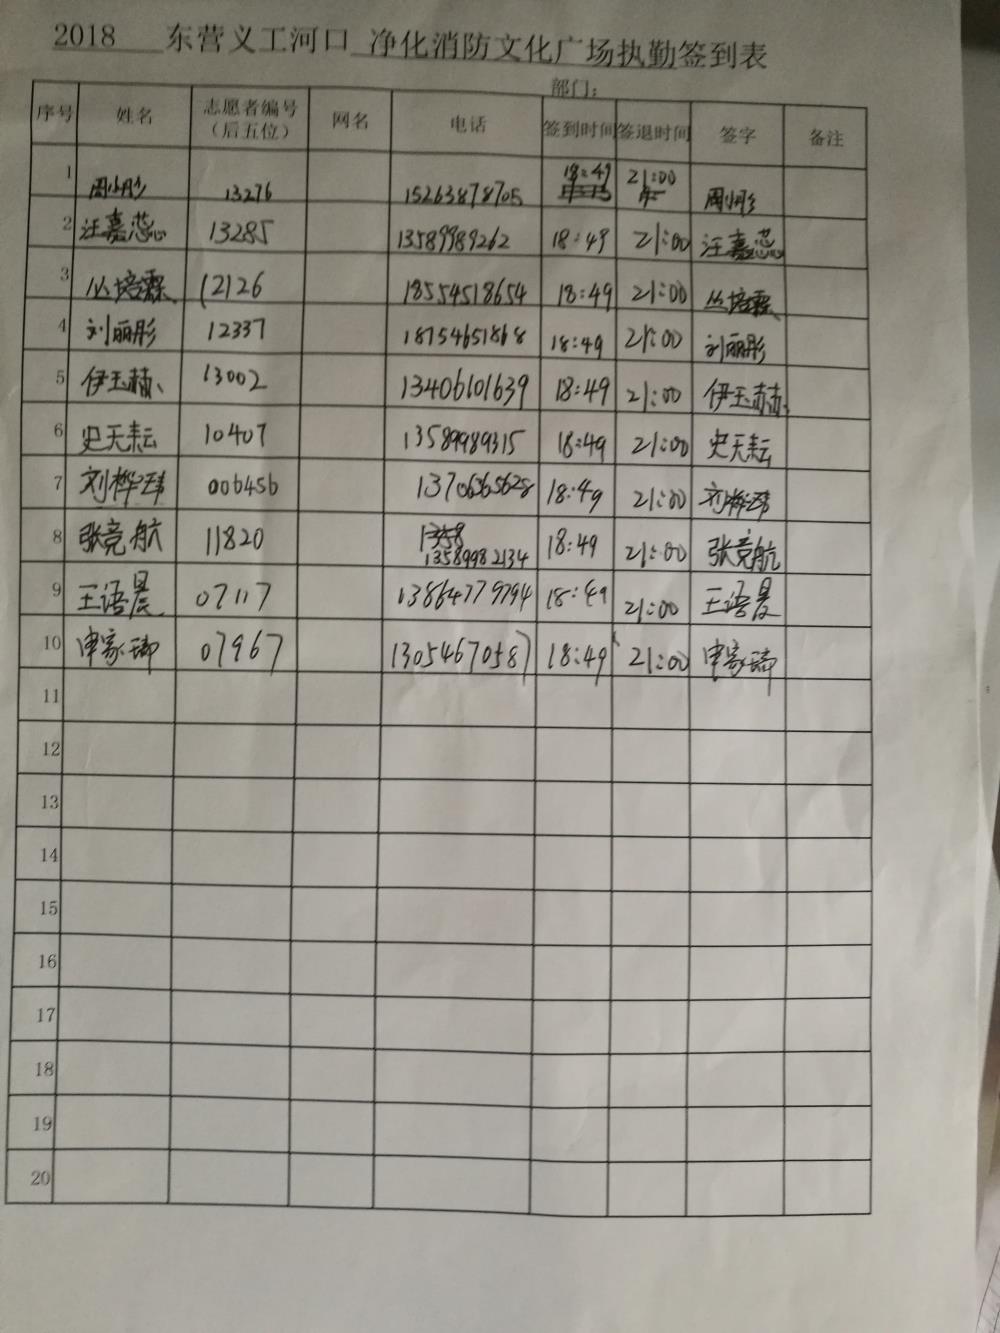 2018 东营义工河口 净化消防文化广场执勤签到表
部门:
序号 姓名 志愿者编号（后五位） 网名 电话 签到时间 签退时间 签字 备注
1 周小彤 13276 15263878705 18:49 21:00 周小彤
2 汪嘉蕊 13285 13589989262 18:49 21:00 汪嘉蕊
3 丛培霖 12126 18554518654 18:49 21:00 丛培霖
4 刘丽彤 12337 18754651868 18:49 21:00 刘丽彤
5 伊玉赫 13002 13406101639 18:49 21:00 伊玉赫
6 史天耘 10407 13589989315 18:49 21:00 史天耘
7 刘桦玮 006456 13706365628 18:49 21:00 刘桦玮
8 张竞航 11820 13589982134 18:49 21:00 张竞航
9 王语晨 07117 13864779794 18:49 21:00 王语晨
10 申家瑞 07967 13054670587 18:49 21:00 申家瑞
11
12
13
14
15
16
17
18
19
20